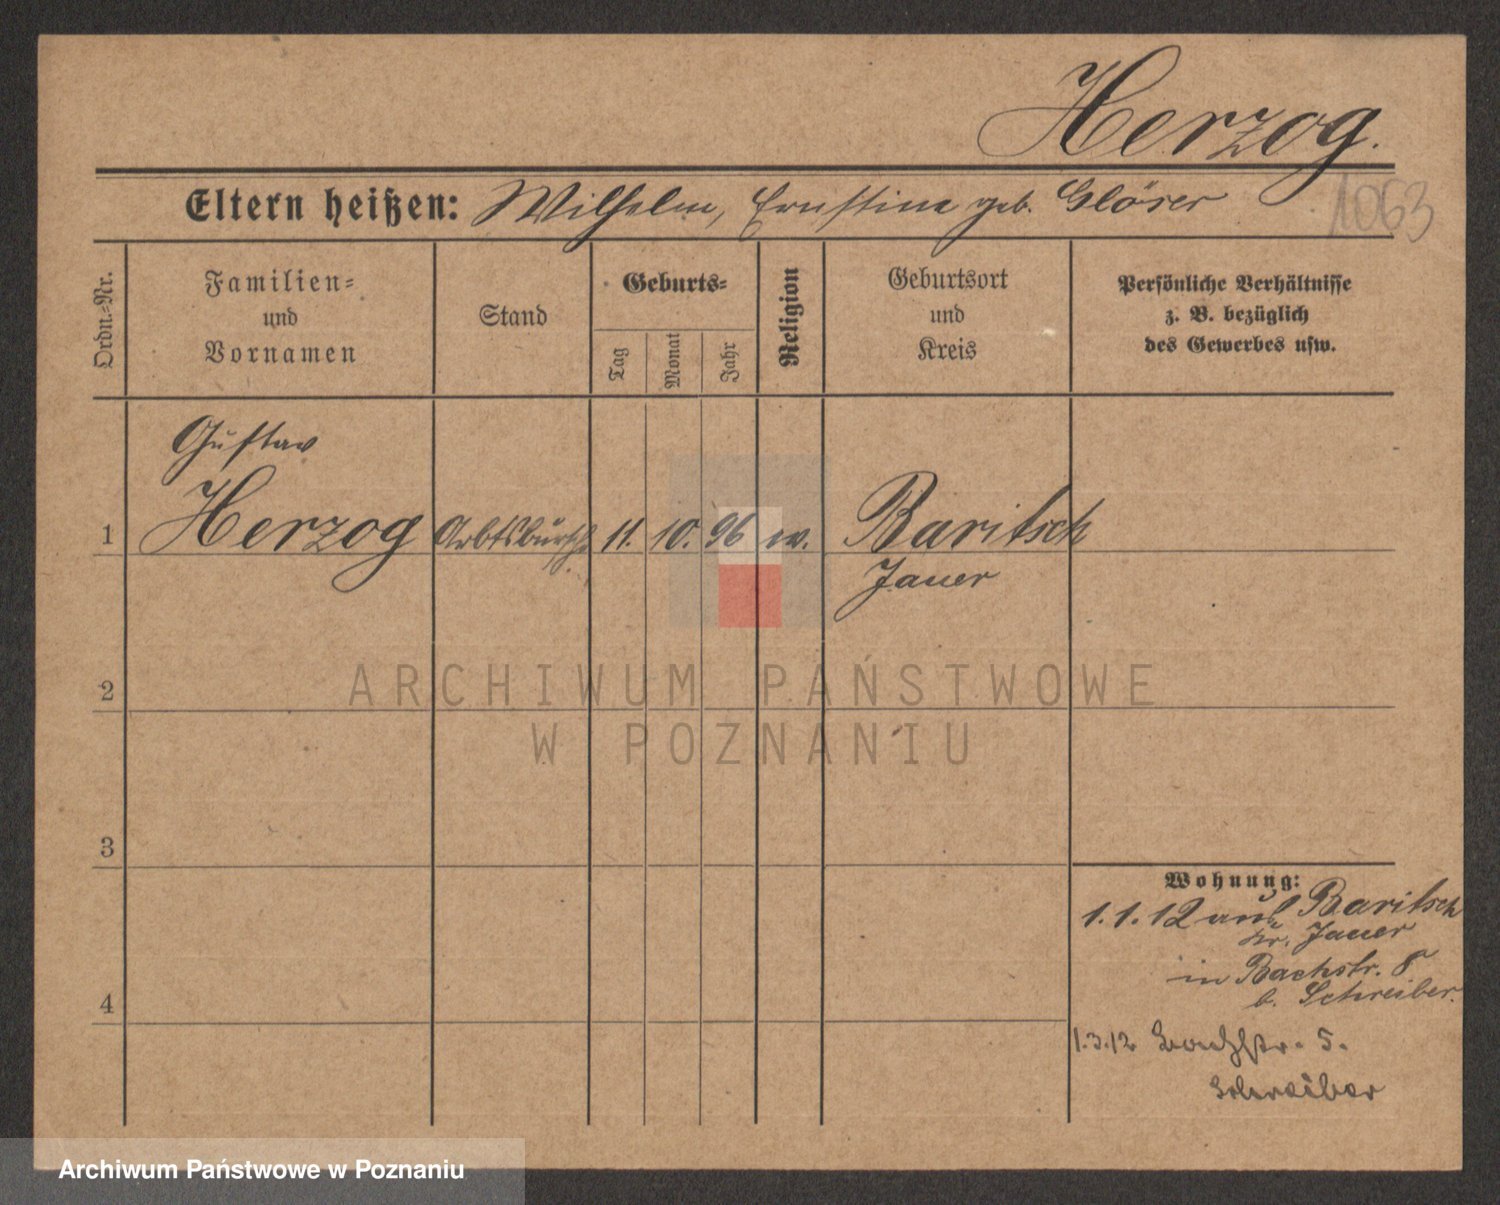 Herzog.
1063
Eltern heißen: Wilhelm, Ernstine geb. Gläser
Ordn.-Nr.
Familien-
und
Vornamen
Stand
Geburts-
Tag
Monat
Jahr
Religion
Geburtsort
und
Kreis
Persönliche Verhältnisse
z. B. bezüglich
des Gewerbes usw.
Gustav
1 Herzog Arbtsbursche 11. 10. 96 ev. Baritsch
Jauer
2
ARCHIWUM PAŃSTWOWE
W POZNANIU
3
Wohnung:
1.1.12 aus Baritsch
Kr. Jauer
in Bachstr. 8
b. Schreiber.
4
1.3.12 Bachstr. 5.
Schreiber
Archiwum Państwowe w Poznaniu